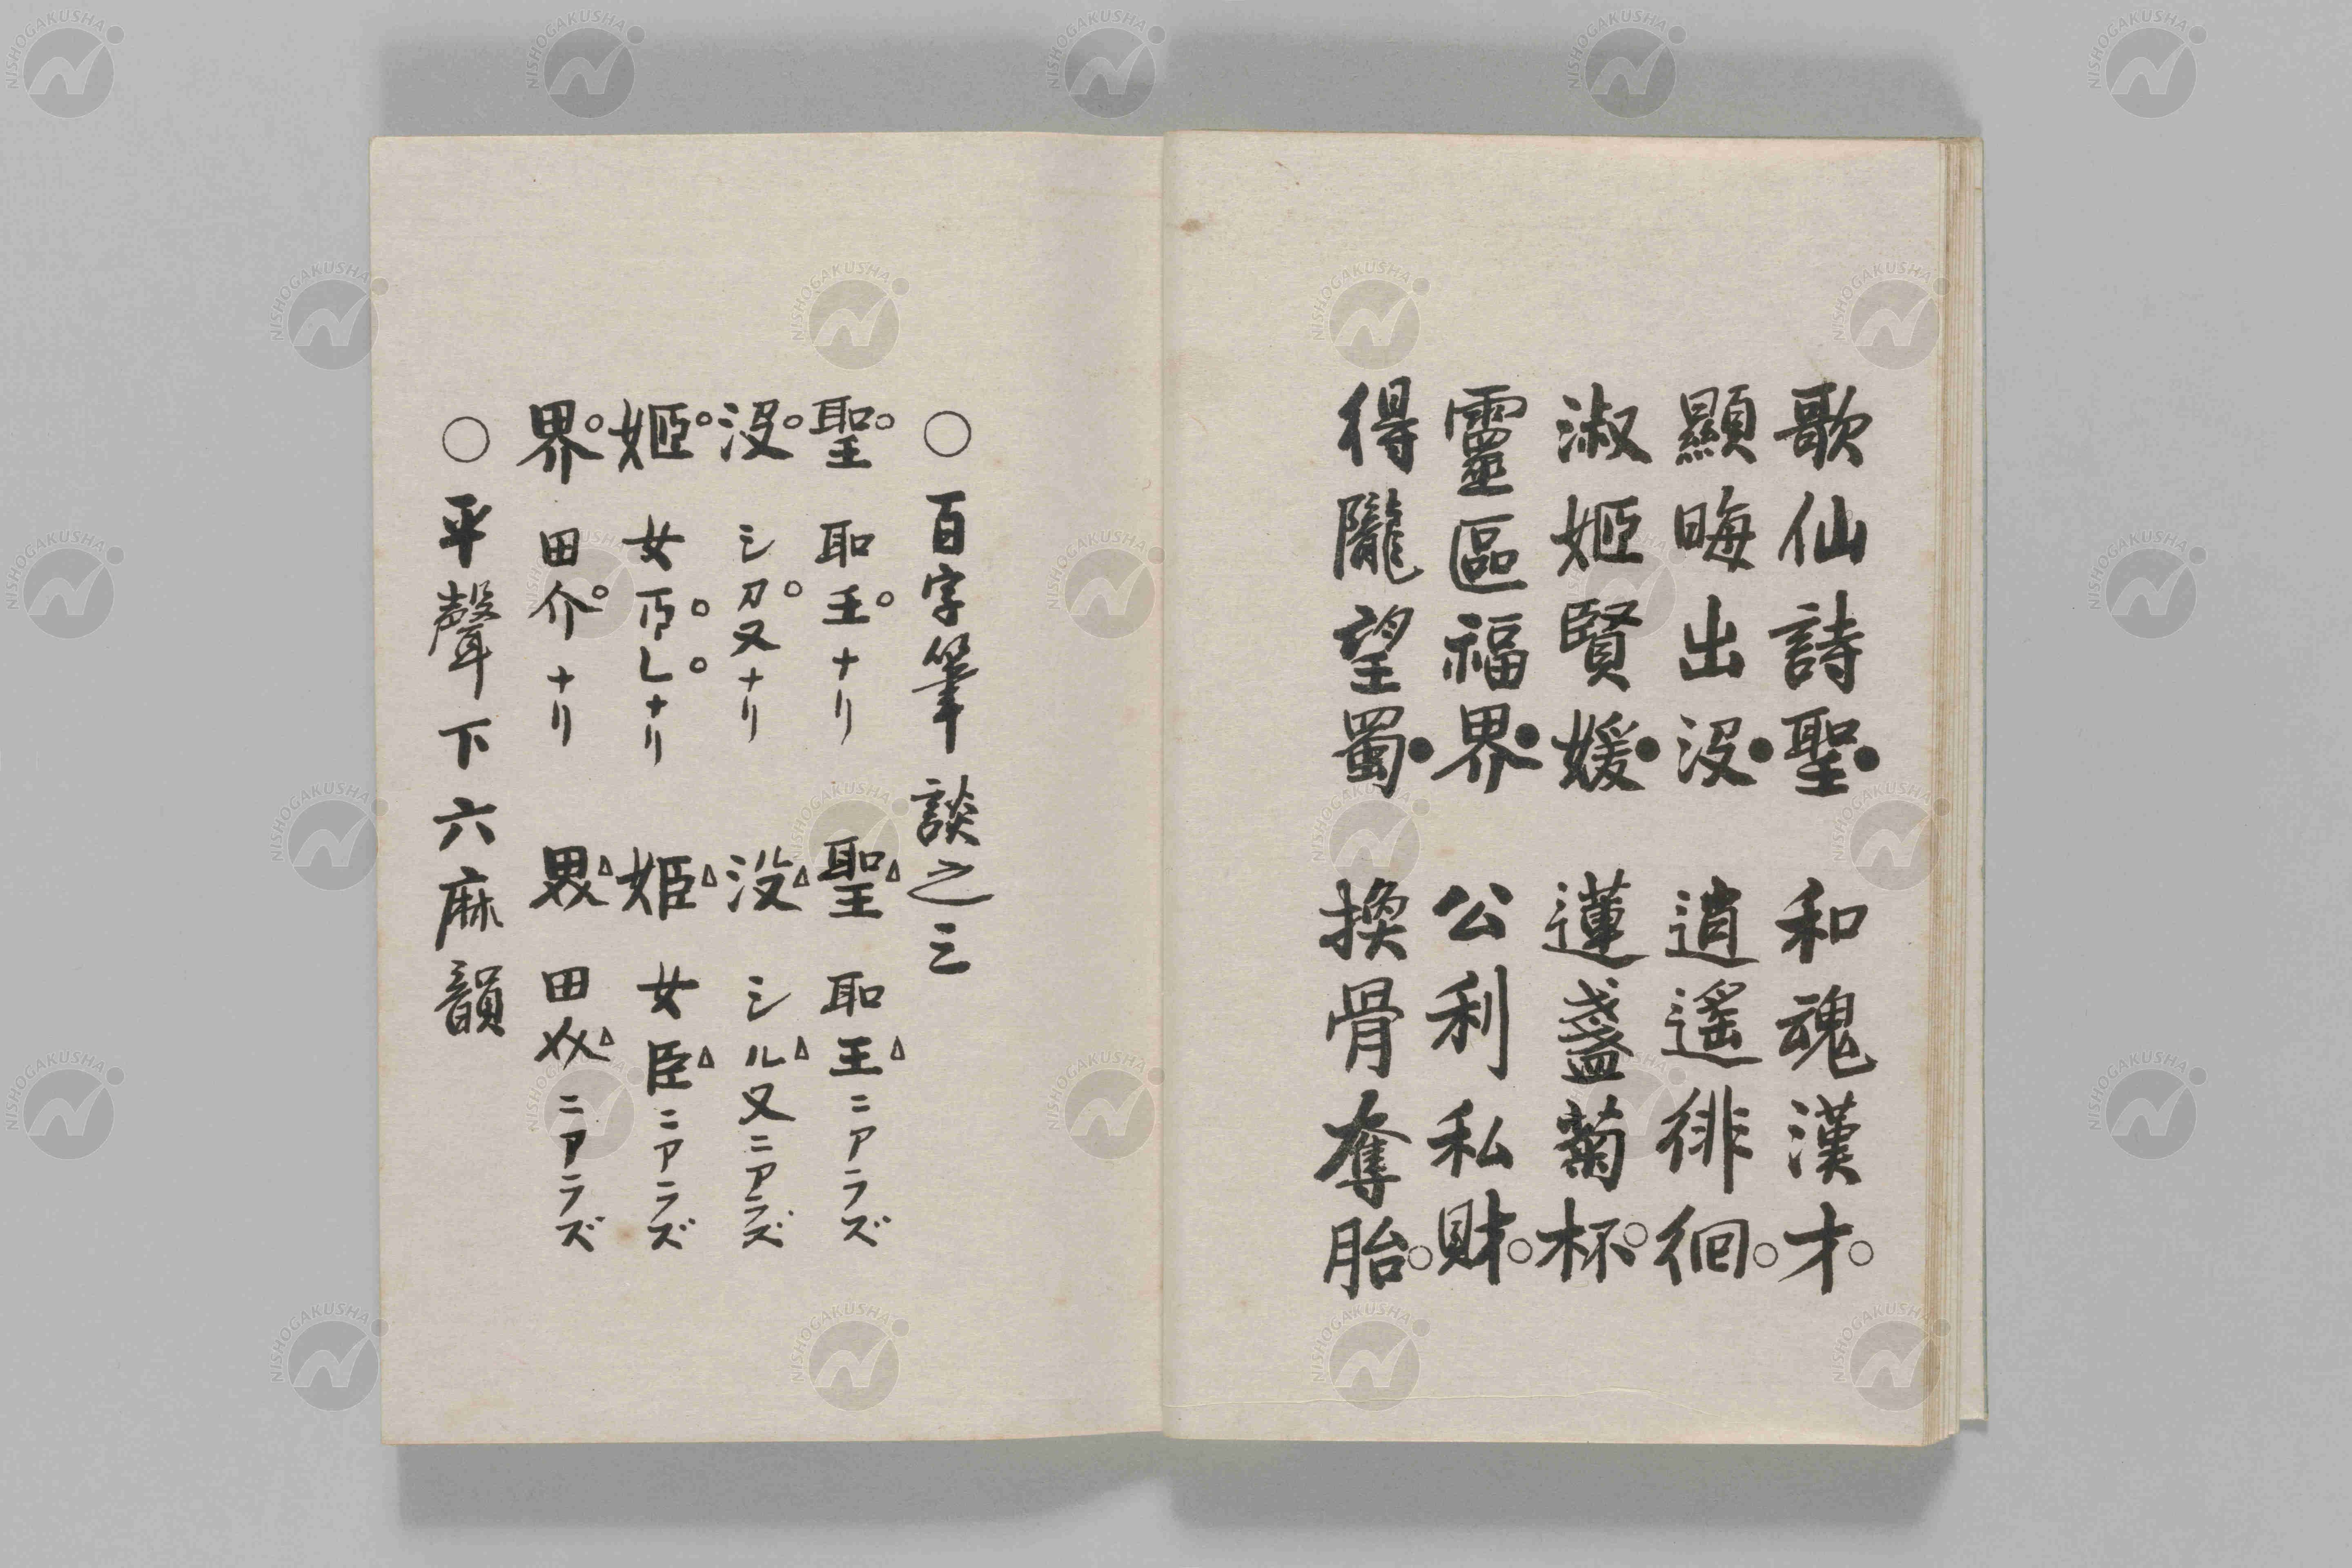 歌仙詩聖● 和魂漢才○
顯晦出沒● 逍遙徘徊○
淑姬賢媛● 蓮盞菊杯○
靈區福界● 公利私財○
得隴望蜀● 換骨奪胎○
○百字筆談之三
聖○ 耴𡈼○ナリ 聖△ 耴王△ニアラズ
沒○ シ刀○又ナリ 没△ シル△又ニアラズ
姬○ 女 ナリ 姫△ 女臣△ニアラズ
界○ 田介○ナリ 田 ニアラズ
○平聲下六麻韻
NISHOGAKUSHA